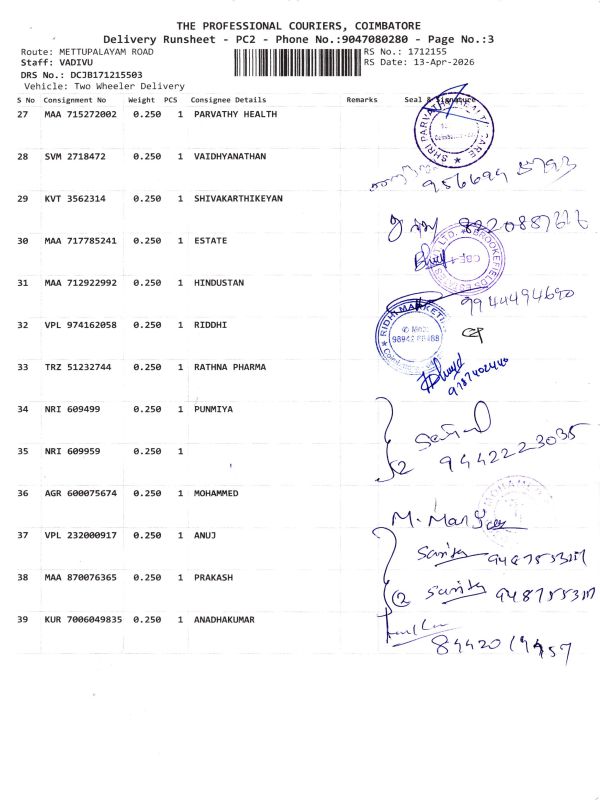 THE PROFESSIONAL COURIERS, COIMBATORE
Delivery Runsheet - PC2 - Phone No.:9047080280 - Page No.:3
Route: METTUPALAYAM ROAD RS No.: 1712155
Staff: VADIVU RS Date: 13-Apr-2026
DRS No.: DCJB171215503
Vehicle: Two Wheeler Delivery
S No Consignment No Weight PCS Consignee Details Remarks Seal & Signature
27 MAA 715272002 0.250 1 PARVATHY HEALTH
28 SVM 2718472 0.250 1 VAIDHYANATHAN
29 KVT 3562314 0.250 1 SHIVAKARTHIKEYAN
30 MAA 717785241 0.250 1 ESTATE
31 MAA 712922992 0.250 1 HINDUSTAN
9944494690
32 VPL 974162058 0.250 1 RIDDHI
33 TRZ 51232744 0.250 1 RATHNA PHARMA
34 NRI 609499 0.250 1 PUNMIYA
35 NRI 609959 0.250 1
2 9442223035
36 AGR 600075674 0.250 1 MOHAMMED
37 VPL 232000917 0.250 1 ANUJ
38 MAA 870076365 0.250 1 PRAKASH
2
39 KUR 7006049835 0.250 1 ANADHAKUMAR